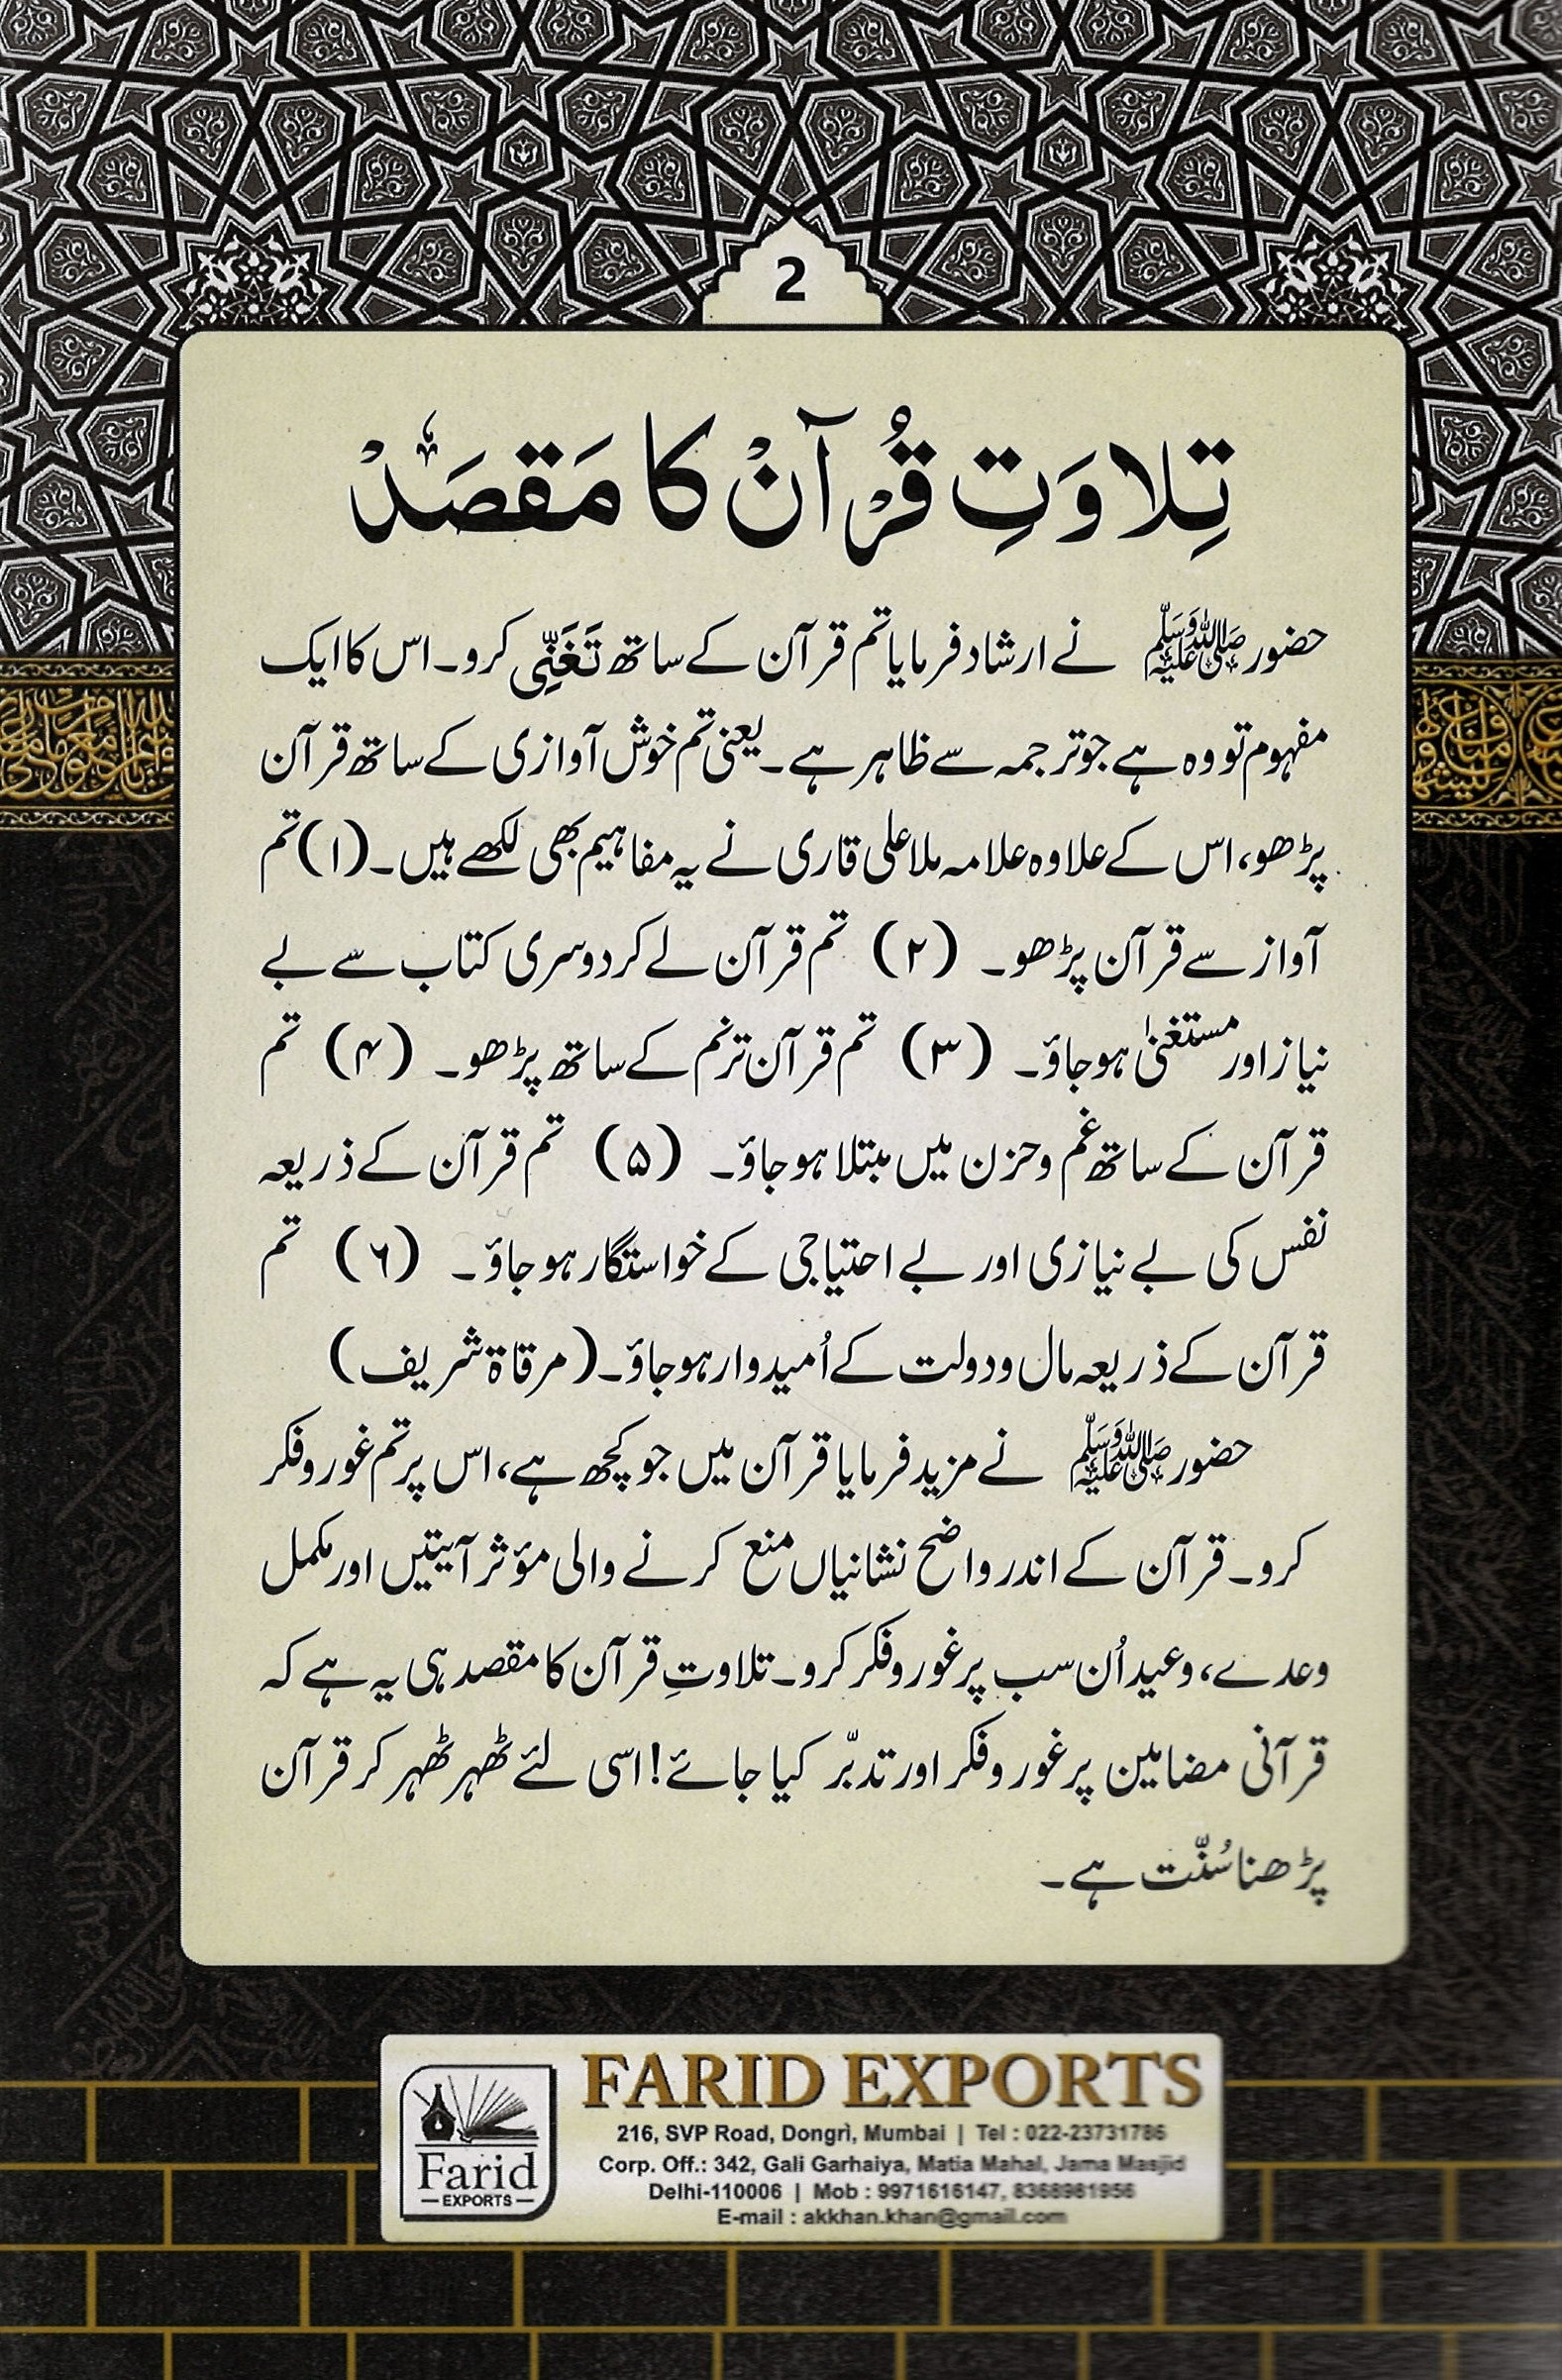 2
تِلاوَتِ قُرْآنْ کا مَقصَدْ
حضور ﷺ نے ارشاد فرمایا تم قرآن کے ساتھ تَغَنِّی کرو۔ اس کا ایک
مفہوم تو وہ ہے جو ترجمہ سے ظاہر ہے۔ یعنی تم خوش آوازی کے ساتھ قرآن
پڑھو، اس کے علاوہ علامہ ملا علی قاری نے یہ مفاہیم بھی لکھے ہیں۔ (۱) تم
آواز سے قرآن پڑھو۔ (۲) تم قرآن لے کر دوسری کتاب سے بے
نیاز اور مستغنیٰ ہو جاؤ۔ (۳) تم قرآن ترنم کے ساتھ پڑھو۔ (۴) تم
قرآن کے ساتھ غم و حزن میں مبتلا ہو جاؤ۔ (۵) تم قرآن کے ذریعہ
نفس کی بے نیازی اور بے احتیاجی کے خواستگار ہو جاؤ۔ (۶) تم
قرآن کے ذریعہ مال و دولت کے اُمیدوار ہو جاؤ۔ (مرقاۃ شریف)
حضور ﷺ نے مزید فرمایا قرآن میں جو کچھ ہے، اس پر تم غور و فکر
کرو۔ قرآن کے اندر واضح نشانیاں منع کرنے والی مؤثر آیتیں اور مکمل
وعدے، وعید اُن سب پر غور و فکر کرو۔ تلاوتِ قرآن کا مقصد ہی یہ ہے کہ
قرآنی مضامین پر غور و فکر اور تدبّر کیا جائے! اسی لئے ٹھہر ٹھہر کر قرآن
پڑھنا سُنّت ہے۔
Farid
EXPORTS
FARID EXPORTS
216, SVP Road, Dongri, Mumbai | Tel : 022-23731786
Corp. Off.: 342, Gali Garhaiya, Matia Mahal, Jama Masjid
Delhi-110006 | Mob : 9971616147, 8368981956
E-mail : akkhan.khan@gmail.com